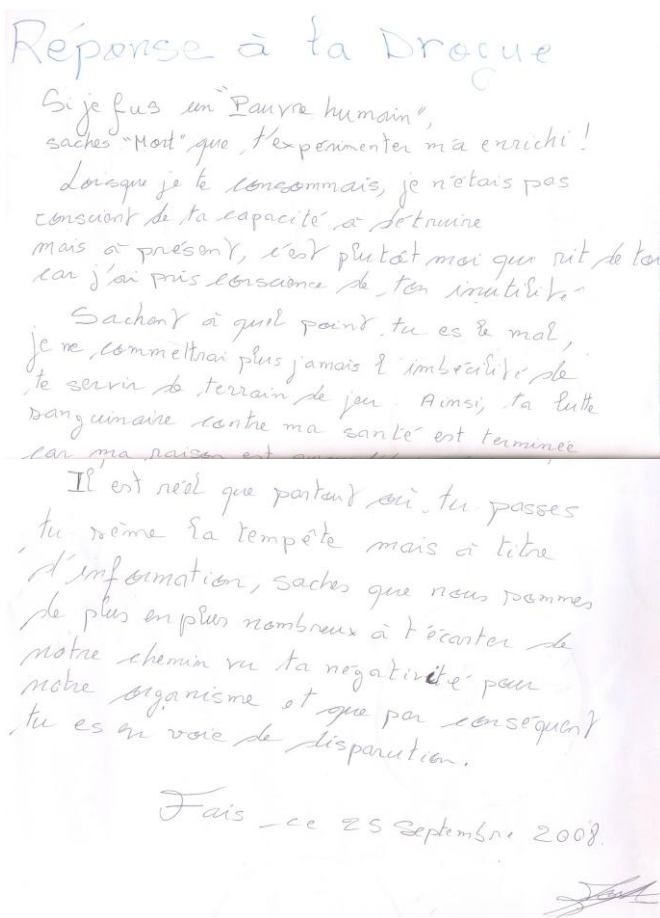 Réponse à ta Drogue
Si je fus un "Pauvre humain",
saches "Mort" que t'expérimenter m'a enrichi !
Lorsque je te consommais, je n'étais pas
conscient de ta capacité à détruire
mais à présent, c'est plutôt moi qui rit de toi
car j'ai pris conscience de ton inutilité
Sachant à quel point tu es le mal,
je ne commettrai plus jamais l'imbécilité de
te servir de terrain de jeu. Ainsi, ta lutte
sanguinaire contre ma santé est terminée
car ma raison est
Il est réel que partout où tu passes
tu sème la tempête mais à titre
d'information, saches que nous sommes
de plus en plus nombreux à t'écarter de
notre chemin vu ta négativité pour
notre organisme et que par conséquent
tu es en voie de disparution.
Fais ce 25 Septembre 2008.